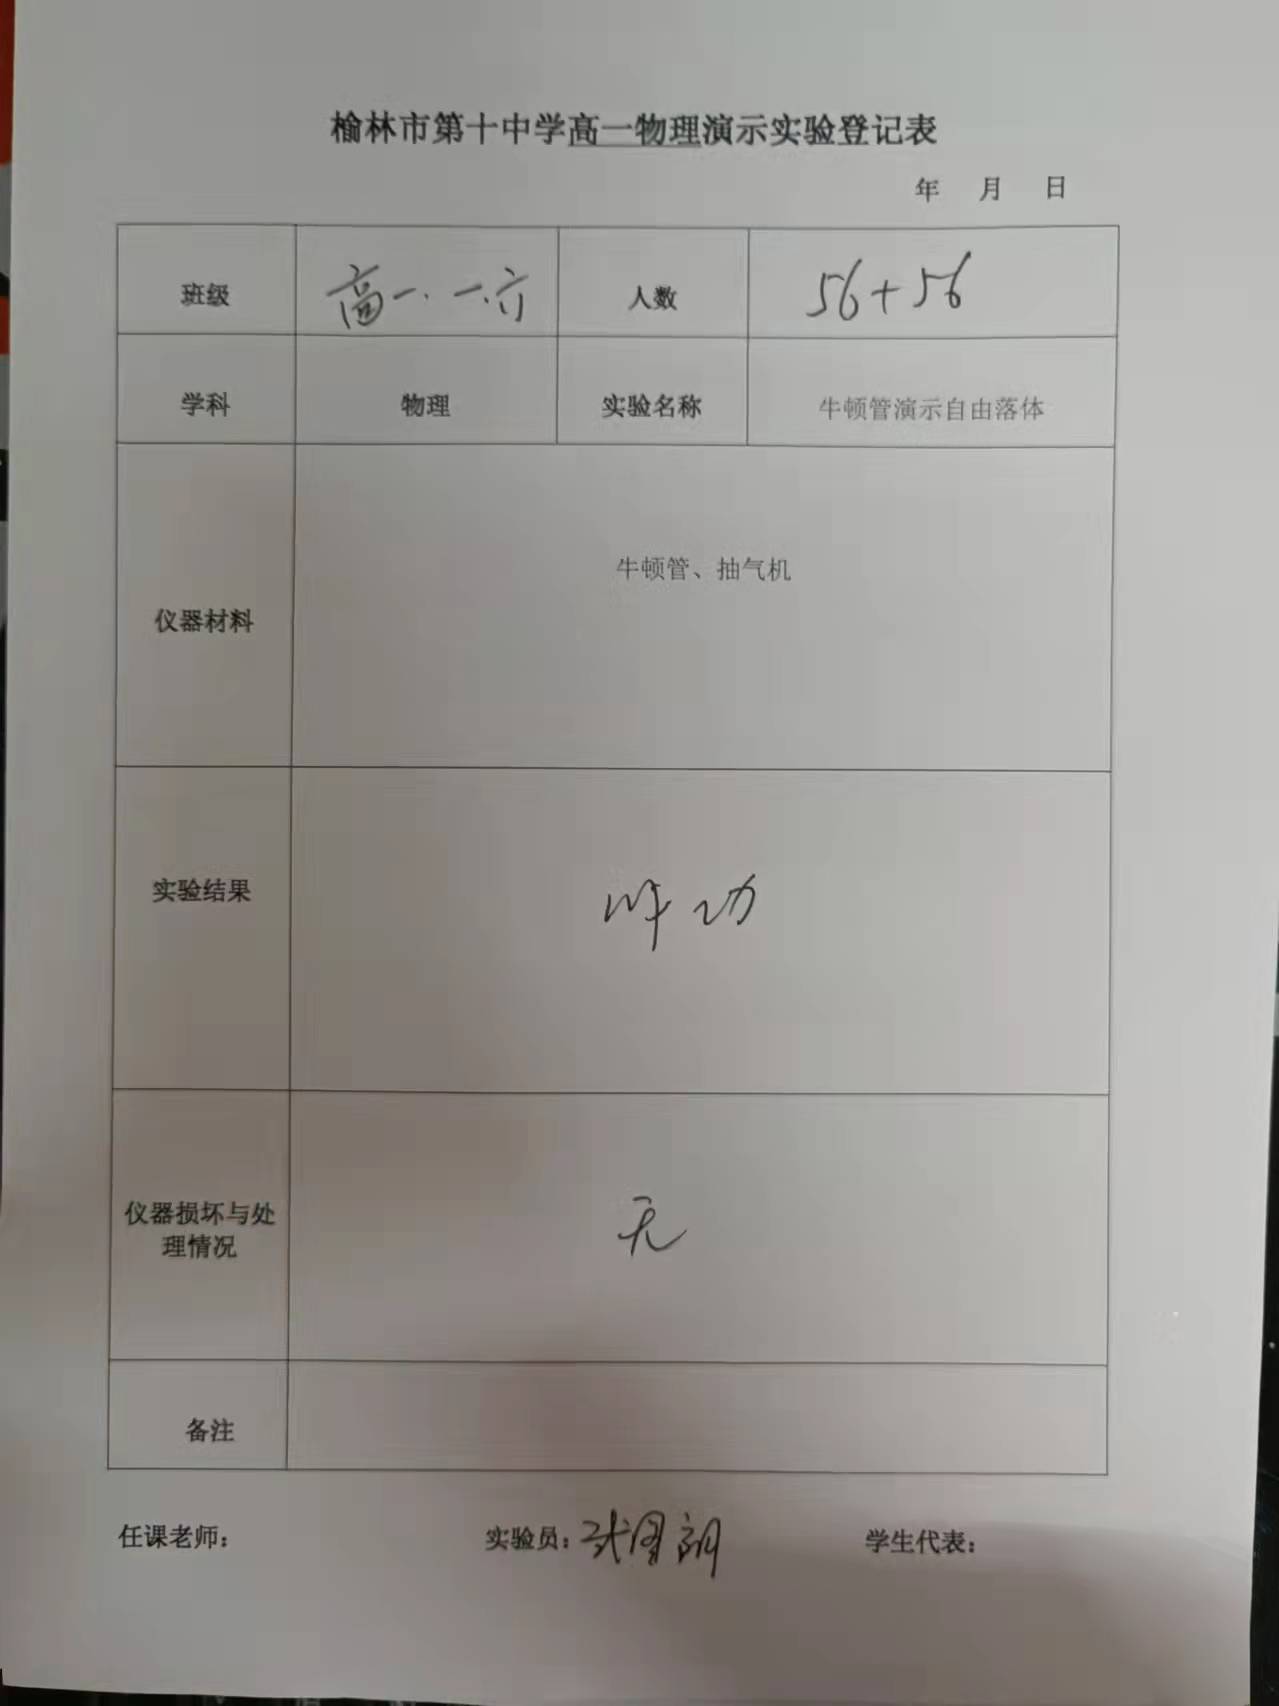 榆林市第十中学高一物理演示实验登记表
年 月 日
班级 高一.一.六 人数 56+56
学科 物理 实验名称 牛顿管演示自由落体
仪器材料 牛顿管、抽气机
实验结果 成功
仪器损坏与处
理情况 无
备注
任课老师： 实验员： 学生代表：